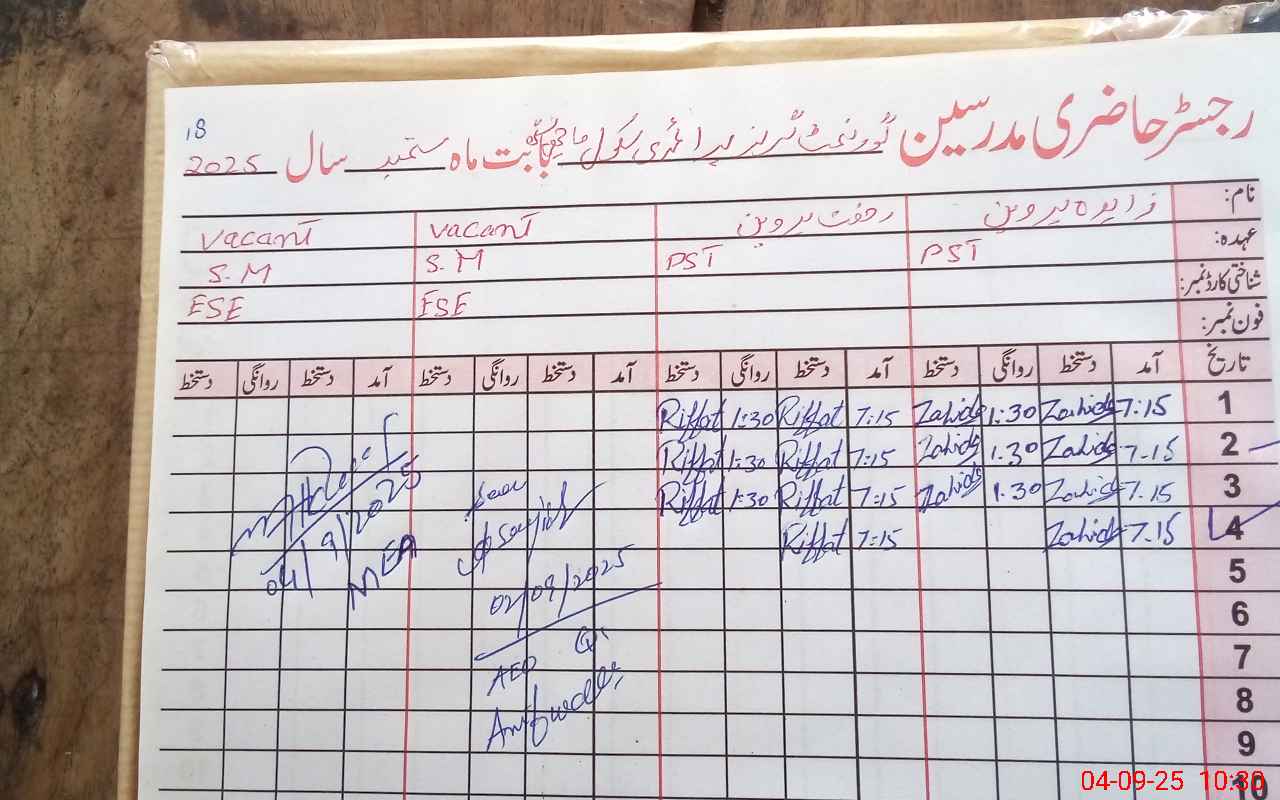 رجسٹر حاضری مدرسین گورنمنٹ گرلز پرائمری سکول بابت ماہ ستمبر سال 2025
18
نام: زاہدہ پروین رفعت پروین vacant vacant
عہدہ: PST PST S.M S.M
شناختی کارڈ نمبر: ESE ESE
فون نمبر:
تاریخ آمد دستخط روانگی دستخط آمد دستخط روانگی دستخط آمد دستخط روانگی دستخط آمد دستخط روانگی دستخط
1 7:15 Zahida 1:30 Zahida 7:15 Riffat 1:30 Riffat
2 7-15 Zahida 1.30 Zahida 7:15 Riffat 1:30 Riffat
3 7.15 Zahida 1.30 Zahida 7:15 Riffat 1:30 Riffat
4 7-15 Zahida 7:15 Riffat
5
6
7
8
9
10
02/09/2025
AEO
04/9/2025
MEA
04-09-25 10:30